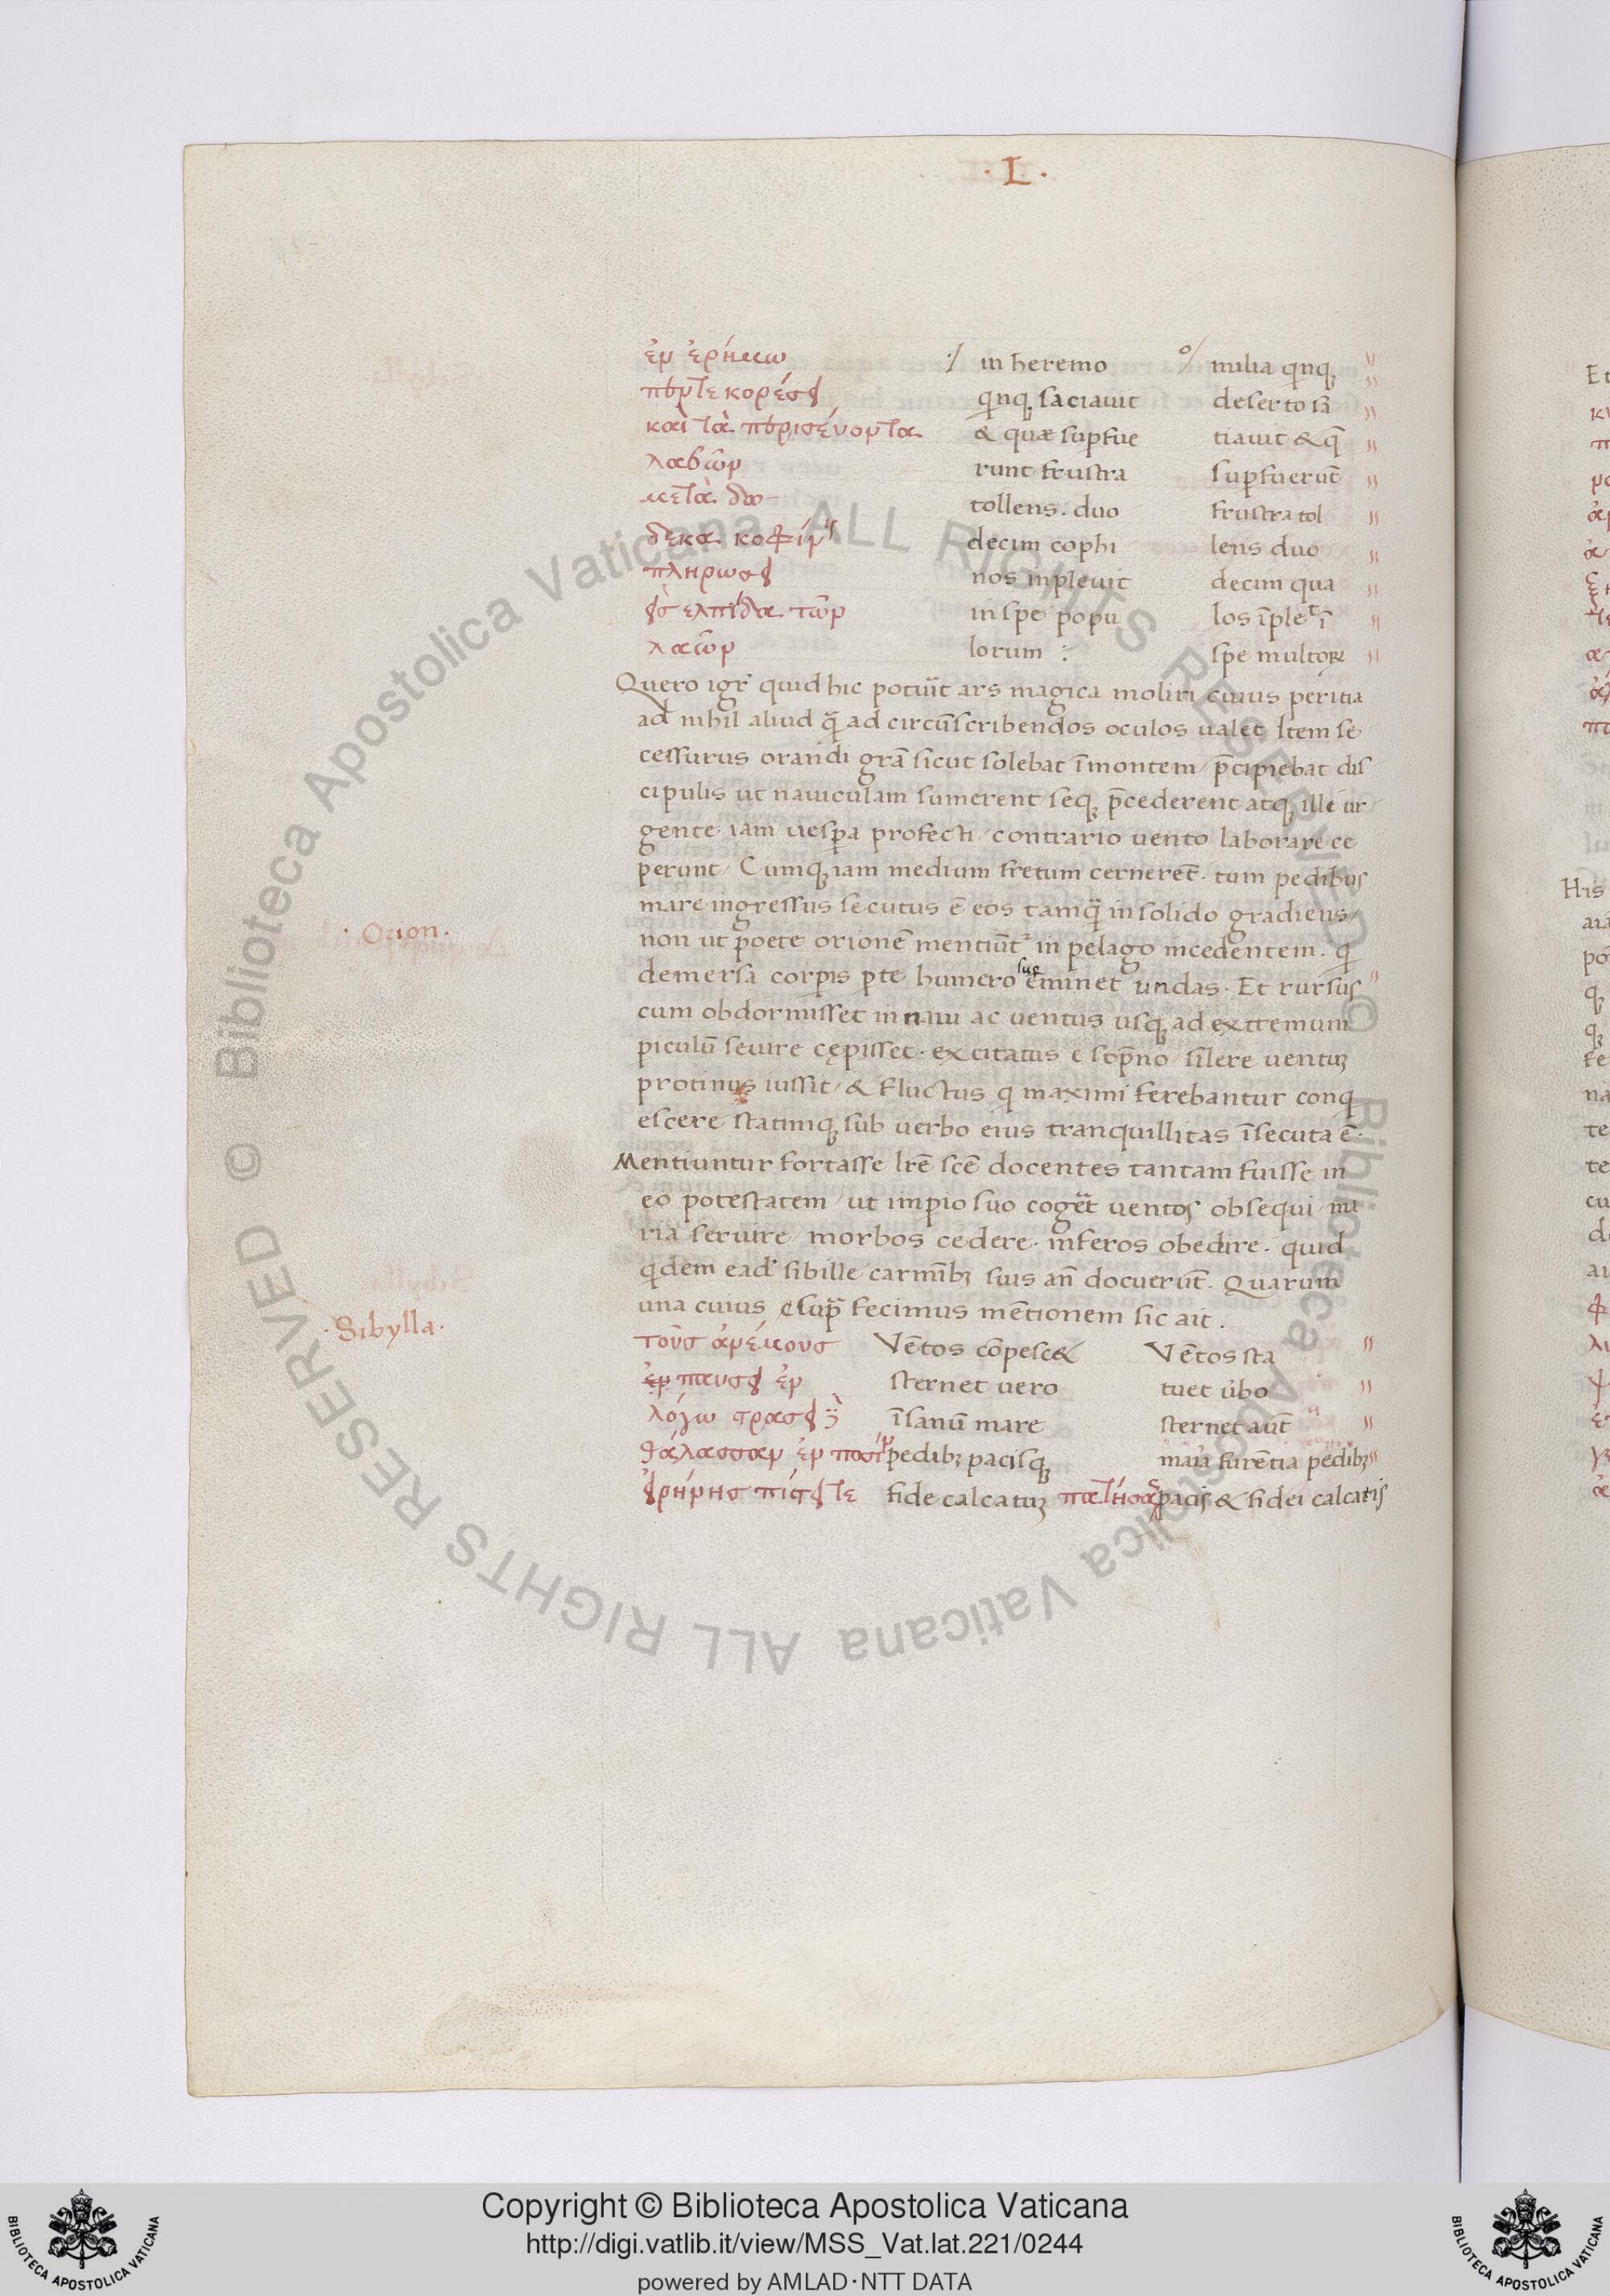 · L ·
ἐν ἐρήμω ·/ in heremo °/ milia qnq;
πεντε κορέσει qnq; saciauit deserto sā
καὶ τὰ περισέυοντα & quæ supfue tiauit & q̄
λαβῶν runt frustra supfuerūt
μετὰ δω- tollens. duo frustra tol
δεκα κοφίν decim cophi lens duo
πληρωσει nos inpleuit decim qua
εἰσ ελπίδα τῶν in spe popu los īplet ī
λαῶν lorum : spe multoꝝ
Quero igr̄ quid hic potuit ars magica moliri cuius peritia
ad nihil aliud q̄ ad circūscribendos oculos ualet Item se
cessurus orandi grā sicut solebat ī montem / p̄cipiebat dis
cipulis ut nauiculam sumerent seq; p̄cederent atq; ille ur
gente iam uespa profecti / contrario uento laborare ce
perunt / Cumq; iam medium fretum cernerēt. tum pedibus
mare ingressus secutus ē eos tamq̄ in solido gradiens /
· Orion ·
non ut poete orionē mentiūt᷑ in pelago incedentem. q
demersa corpis pte humero sup eminet undas. Et rursus
cum obdormisset in naui ac uentus usq; ad extremum
piculū seuire cępisset. excitatus e sop̄no / silere uentuȝ
protinus iussit / & fluctus q maximi ferebantur conq
escere statimq; sub uerbo eius tranquillitas īsecuta ē.
Mentiuntur fortasse lrē scē docentes tantam fuisse in
eo potestatem / ut impio suo coget uentos obsequi / ma
ria seruire / morbos cedere. inferos obedire. quid
qdem ead᷑ sibille carmīb; suis an̄ docuerūt. Quarum
una cuius sup̄ fecimus mētionem sic ait.
· Sibylla ·
τοῦσ ἀνέμουσ Vētos cōpesc& Vētos sta
ἐν παυσει ἐν sternet uero tuet ůbo
λόγω στρασει īsanū mare sternet aūt
θάλασσαν ἐν ποσὶν pedib; pacisq; maria furētia pedib;
εἰρήνησ πίστει τε fide calcatuȝ πατήσασ pacis & fidei calcatis
Copyright © Biblioteca Apostolica Vaticana
http://digi.vatlib.it/view/MSS_Vat.lat.221/0244
powered by AMLAD·NTT DATA